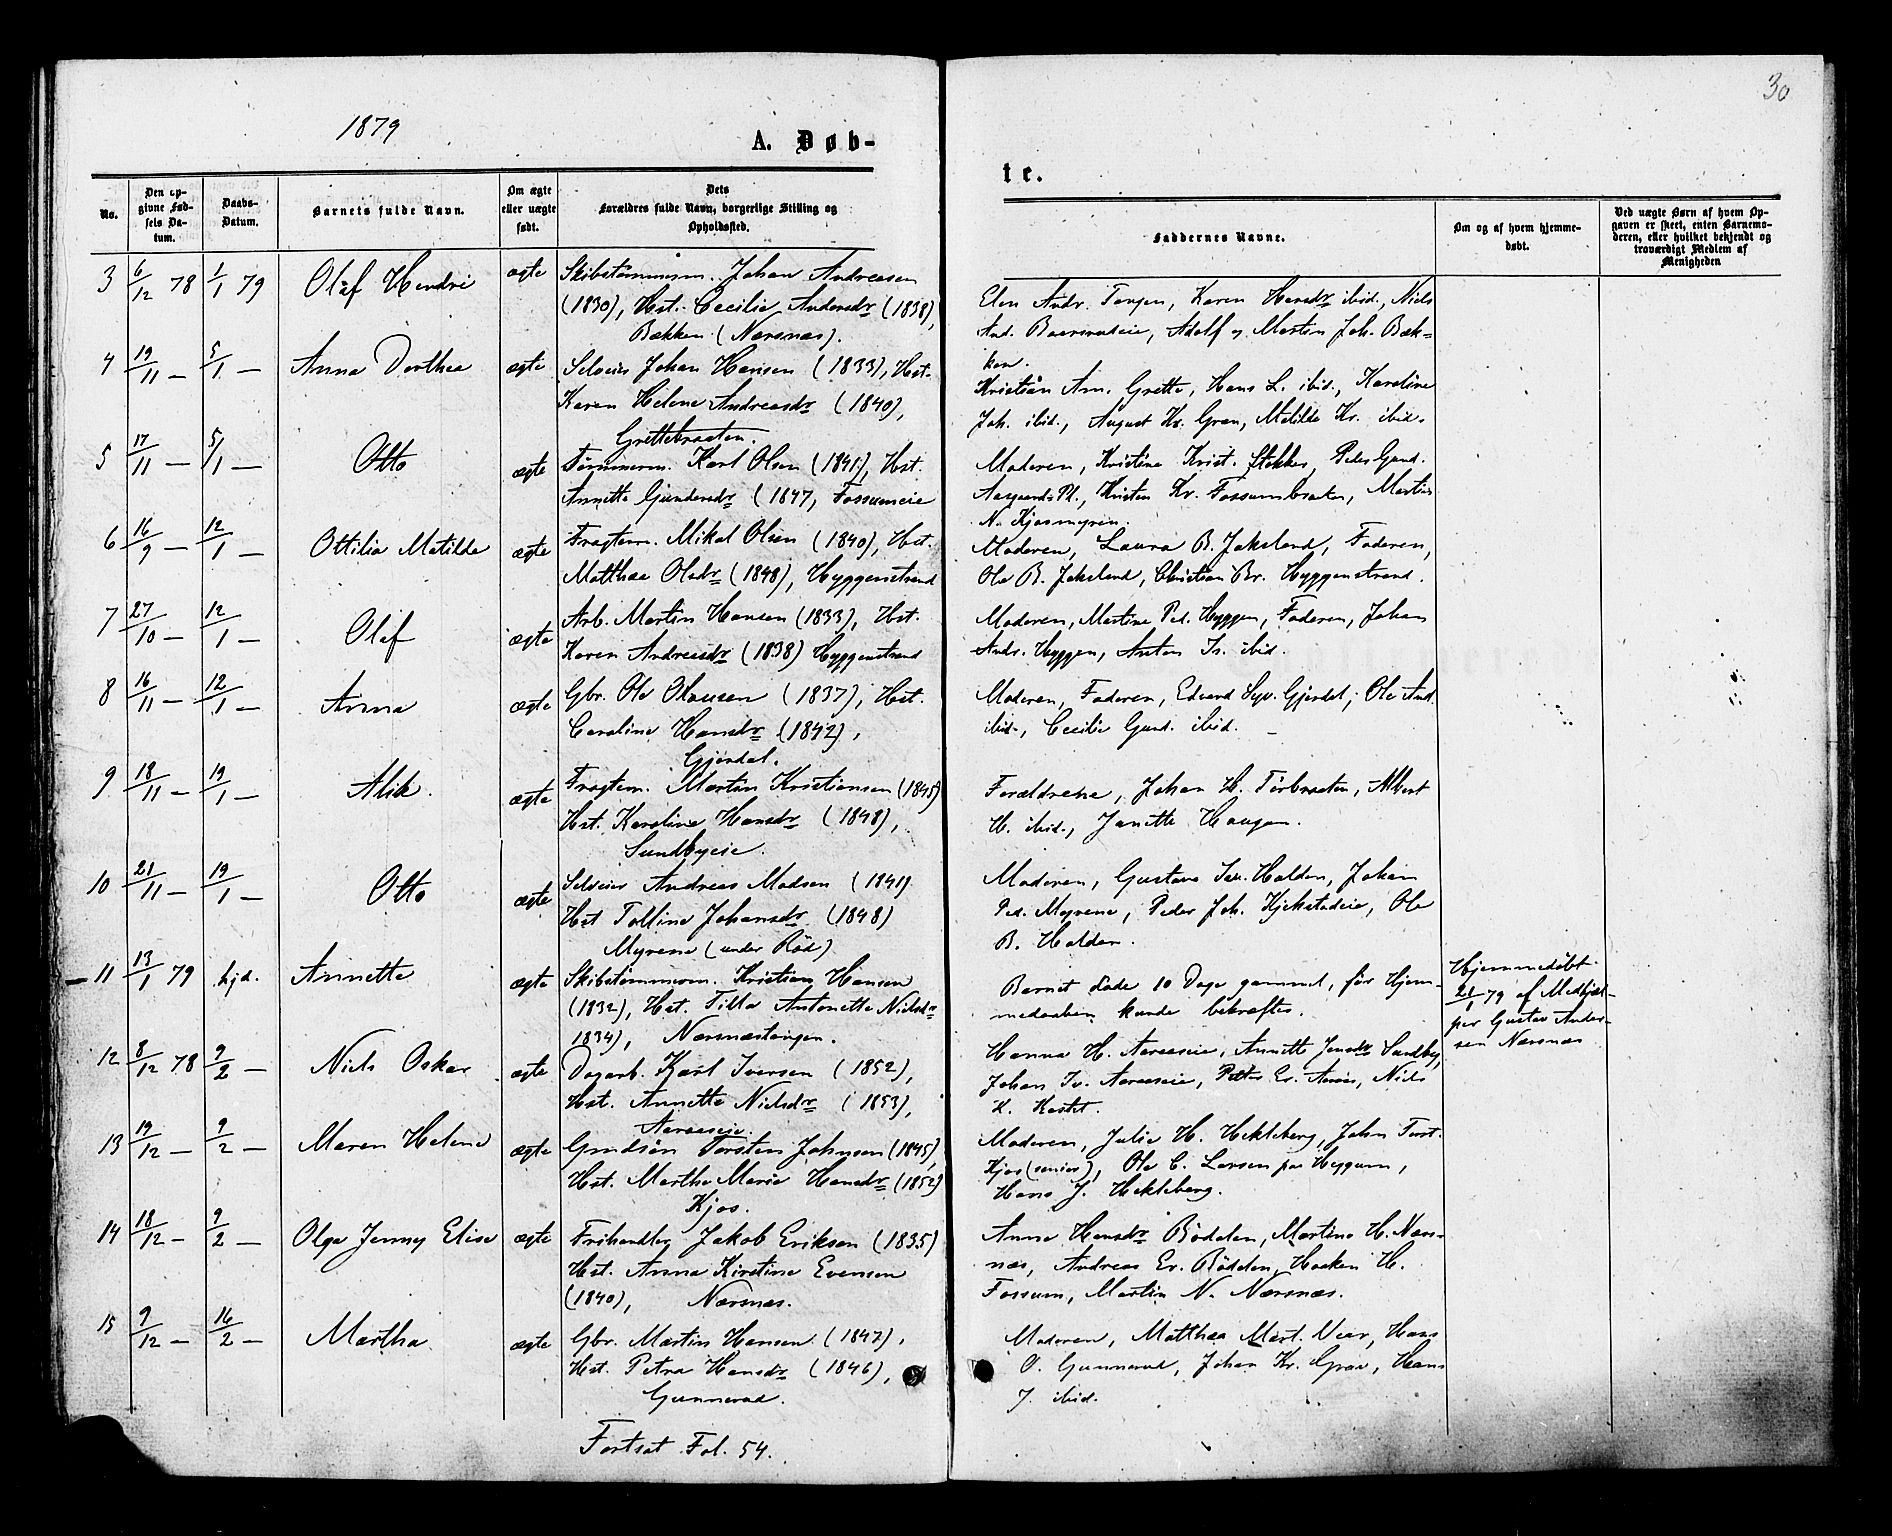 30
1879
A. Døb-
te.
No.
Den op-
givne Fød-
sels Da-
tum.
Daabs-
Datum.
Barnets fulde Navn.
Om ægte
eller uægte
født.
Dets
Forældres fulde Navn, borgerlige Stilling og
Opholdssted.
Faddernes Navne.
Om og af hvem hjemme-
døbt.
Ved uægte Børn af hvem Op-
gaven er skeet, enten Barnemo-
deren, eller hvilket bekjendt og
troværdigt Medlem af
Menigheden
3 6/12 78 1/1 79 Olaf Hendri ægte Skibstømmerm. Johan Andreasen
(1830), Hst. Cecilie Andersdr (1838),
Bakken (Nærsnæs).
Elen Andr. Tangen, Karen Hansdr ibid., Niels
And. Adolf og Martin Joh. Bak-
ken.
4 19/11 — 5/1 — Anna Dorthea ægte Selveier Johan Hansen (1833), Hst.
Karen Helene Andreasdr (1840),
Grettebraaten.
Kristian Am. Grette, Hans L. ibid., Karoline
Joh. ibid., August Kr. Gran, Matilde Kr. ibid.
5 17/11 — 5/1 — Otto ægte Tømmerm. Karl Olsen (1841), Hst.
Annette Gundersdr (1847, Fossumeie
Moderen, Kristine Krist. Stokker, Peder Gund.
Aasgaards Pl., Kristen Kr. Fossumbraaten, Martin
N. Kjosmyren.
6 16/9 — 12/1 — Ottilia Matilde ægte Fragtem. Mikal Olsen (1840), Hst.
Matthea Olsdr (1848), Hyggenstrand
Moderen, Laura B. Jaksland, Faderen,
Ole B. Jaksland, Christian Br. Hyggenstrand.
7 27/10 — 12/1 — Olaf ægte Arb. Martin Hansen (1833), Hst.
Karen Andreasdr (1838) Hyggenstrand
Moderen, Martine Ped. Hyggen, Faderen, Johan
Andr. Hyggen, Anton Is. ibid.
8 16/11 — 12/1 — Anna ægte Gbr. Ole Olausen (1837), Hst.
Caroline Hansdr (1842),
Gjerdal.
Moderen, Faderen, Edvard Syv. Gjerdal, Ole And.
ibid., Cecilie Gund. ibid. —
9 18/11 — 19/1 — Alik. ægte Fragtem. Martin Kristiansen (1845)
Hst. Karoline Hansdr (1848),
Sundbyeie.
Forældrene, Johan H. Tørbraaten, Albert
H. ibid., Janette Haugen.
10 21/11 — 19/1 — Otto ægte Selveier Andreas Madsen (1841)
Hst Tolline Johansdr (1848)
Myrene (under Rød)
Moderen, Gustava Halden, Johan
Ped. Myrene, Peder Joh. Kjekstadeie, Ole
B. Halden.
11 13/1 79 hjd. Annette ægte Skibstømmerm. Kristian Hansen
(1832), Hst. Tilla Antonette Nielsdr
1834), Nærsnæstangen.
Barnet døde 10 Dage gammel, før Hjem-
medaaben kunde bekræftes.
Hjemmedøbt
21/1 79 af Medhjæl-
per Gustav Ander-
sen Nærsnæs
12 8/12 78 9/2 — Niels Oskar ægte Dagarb. Karl Iversen (1852),
Hst. Annette Nielsdr (1853),
Aaraaseie.
Hanna H. Aaraaseie, Annette Jensdr Sundby,
Johan Iv. Aaraaseie, Petter Ev. Aaraas, Niels
K. Kastet.
13 19/12 — 9/2 — Maren Helene ægte Grndsøn Torsten Johnsen (1845),
Hst. Marthe Marie Hansdr (1852)
Kjos.
Moderen, Julie H. Hekleberg, John Torst.
Kjos (senior), Ole C. Larsen paa Heggum,
Hans J. Hekleberg.
14 18/12 — 9/2 — Olga Jenny Elise ægte Frihandler Jakob Eriksen (1835)
Hst. Anna Kirstine Evensen
(1840), Nærsnæs.
Anne Hansdr Bødalen, Martine H. Nærs-
næs, Andreas Ev. Bødalen, Haaken H.
Fossum, Martin N. Nærsnæs.
15 9/12 — 16/2 — Martha ægte Gbr. Martin Hansen (1842),
Hst. Petra Hansdr (1846),
Gunnerud.
Moderen, Matthea Mart. Hans
O. Gunnerud, Johan Kr. Grav, Hans
J. ibid.
Fortsat Fol. 54.